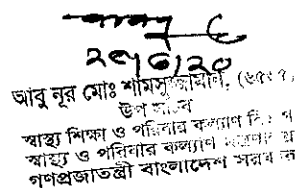 ২৮/৬/২০
আবু নূর মোঃ শামসুজ্জামান, (৬৫৫৭)
উপ সচিব
স্বাস্থ্য শিক্ষা ও পরিবার কল্যাণ
স্বাস্থ্য ও পরিবার কল্যাণ
গণপ্রজাতন্ত্রী বাংলাদেশ সরকার